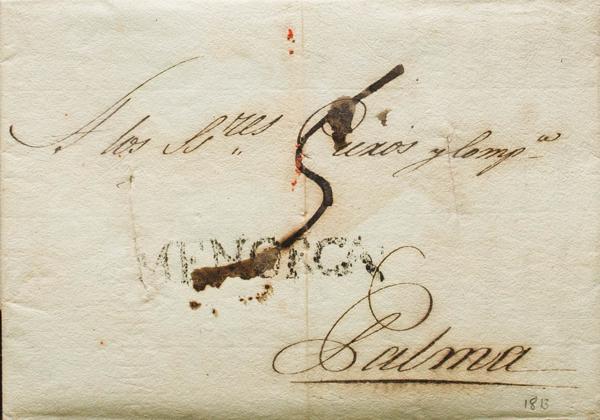 A los S.res Puxos y Comp.a
5
MENORCA
Palma
1813